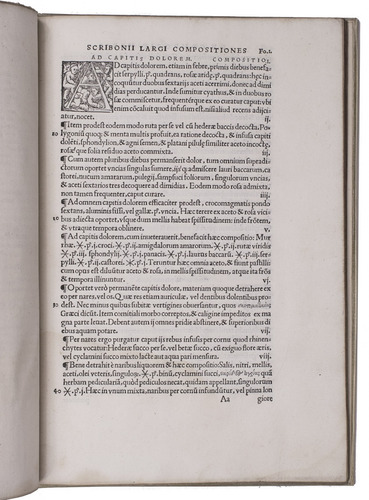 SCRIBONII LARGI COMPOSITIONES Fo.1.
AD CAPITIS DOLOREM. COMPOSITIO I.
AD capitis dolorem, etiam in febre, primis diebus benefa
cit serpylli .p. quadrans, rosæ aridę .p. quadrans: hęc in-
coquuntur duobus sextarijs aceti acerrimi, donec ad dimi
dias perducantur. Inde sumitur cyathus, & in duobus ro-
sæ commiscetur, frequenterqꝫ ex eo curatur caput: vbi
enim cõcaluit quod infusum est, nisi aliud recens adijci
atur, nocet. ij.
¶ Item prodest eodem modo ruta per se vel cũ hederæ baccis decocta. Po
lygoniũ quoqꝫ & menta multis profuit, ea ratione decocta, & infusa capiti
dolẽti, sphondylion, & agni semen, & platani pilulę similiter aceto incoctę,
rosæqꝫ folia residui duo aceto commixta. iij.
¶ Cum autem pluribus diebus permanserit dolor, tum omnium supradi-
ctorum oportet vncias singulas sumere, ijsqꝫ admiscere lauri baccarum, ca
storei, nucum amararum, pulegij, sampsuci foliorum, singulorum vncias,
& aceti sextarios tres decoquere ad dimidias. Eodem modo rosa admixta,
non tamen frequenter curare. iiij.
¶ Ad omnem capitis dolorem efficaciter prodest, crocomagmatis pondo
sextans, aluminis fissi, vel gallæ .p. vncia. Haec terere ex aceto & rosa vicis-
sim adiecta oportet, vsqꝫ dum mellis habeat spissitudinem: inde frõtem,
& vtraqꝫ tempora obsinere. v.
¶ Ad capitis dolorem, cum inueterauerit, benefacit hæc compositio: Myr
rhæ
¶ Oportet verò permanẽte capitis dolore, materiam quoque detrahere ex
eo per nares, vel os. Quæ res etiam auriculæ, vel dentibus dolentibus pro-
dest. Nec minus quibus subitæ vertigines obuersantur, quos
Græci dicũt. Item comitiali morbo correptos, & caligine impeditos ex ma
gna parte leuat. Debent autem ij omnes pridie abstinere, & superioribus di
ebus aquam potare. vij.
¶ Per nares ergo purgatur caput ijs rebus infusis per cornu quod rhinen-
chytes vocatur: Hederæ succo per se, vel betæ succo, cum exiguo flore æris,
vel cyclamini succo mixto lacte aut aqua pari mensura. viij.
¶ Bene detrahit è naribus liquorem & hæc compositio: Salis, nitri, mellis,
aceti, olei veteris, singulorũ
herbam pediculariã, quòd pediculos necat, quidam appellant, singulorum
Hæc in vnum mixta, naribus per cornu infundũtur, vel pinna lon
Aa giore